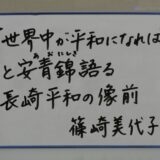 世界中が平和になれば
と安青錦語る
あおにしき
長崎平和の像前
篠崎美代子